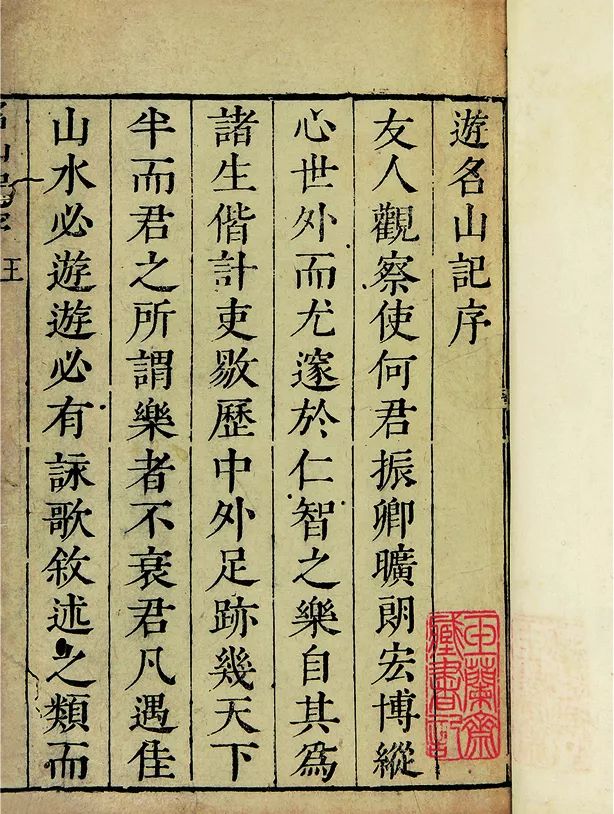 遊名山記序
友人觀察使何君振卿曠朗宏博縱
心世外而尤邃於仁智之樂自其爲
諸生偕計吏敭歷中外足跡幾天下
半而君之所謂樂者不衰君凡遇佳
山水必遊遊必有詠歌敘述之類而
名山記序 王